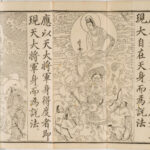 現大自在天身而為說法
應以天大將軍身得度者即
現天大將軍身而為說法